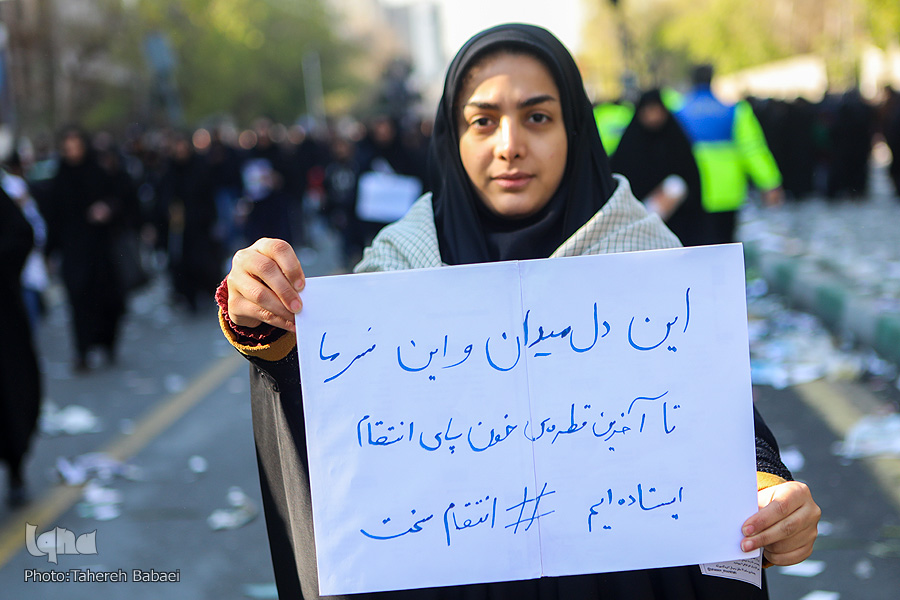 این دل میدان و این سر ما
تا آخرین قطره‌ی خون پای انتقام
ایستاده ایم # انتقام سخت
iqna
Photo:Tahereh Babaei